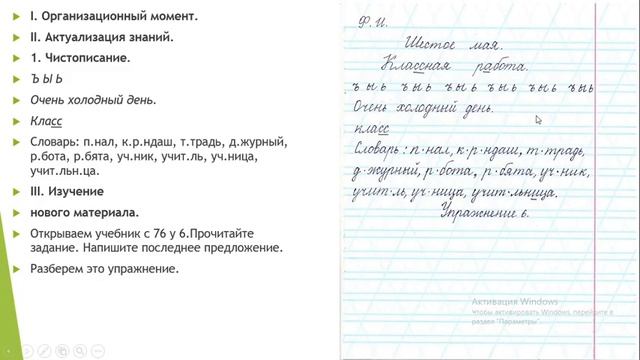 I. Организационный момент.
II. Актуализация знаний.
1. Чистописание.
Ъ Ы Ь
Очень холодный день.
Класс
Словарь: п.нал, к.р.ндаш, т.традь, д.журный,
р.бота, р.бята, уч.ник, учит.ль, уч.ница,
учит.льн.ца.
III. Изучение
нового материала.
Открываем учебник с 76 у 6.Прочитайте
задание. Напишите последнее предложение.
Разберем это упражнение.
Ф. И.
Шестое мая.
Классная работа.
ъ ы ь ъ ы ь ъ ы ь ъ ы ь ъ ы ь ъ ы ь
Очень холодный день.
класс
Словарь: п.нал, к.р.ндаш, т.традь,
д.журный, р.бота, р.бята, уч.ник,
учит.ль, уч.ница, учит.льница.
Упражнение 6.
Активация Windows
Чтобы активировать Windows, перейдите в
раздел "Параметры".